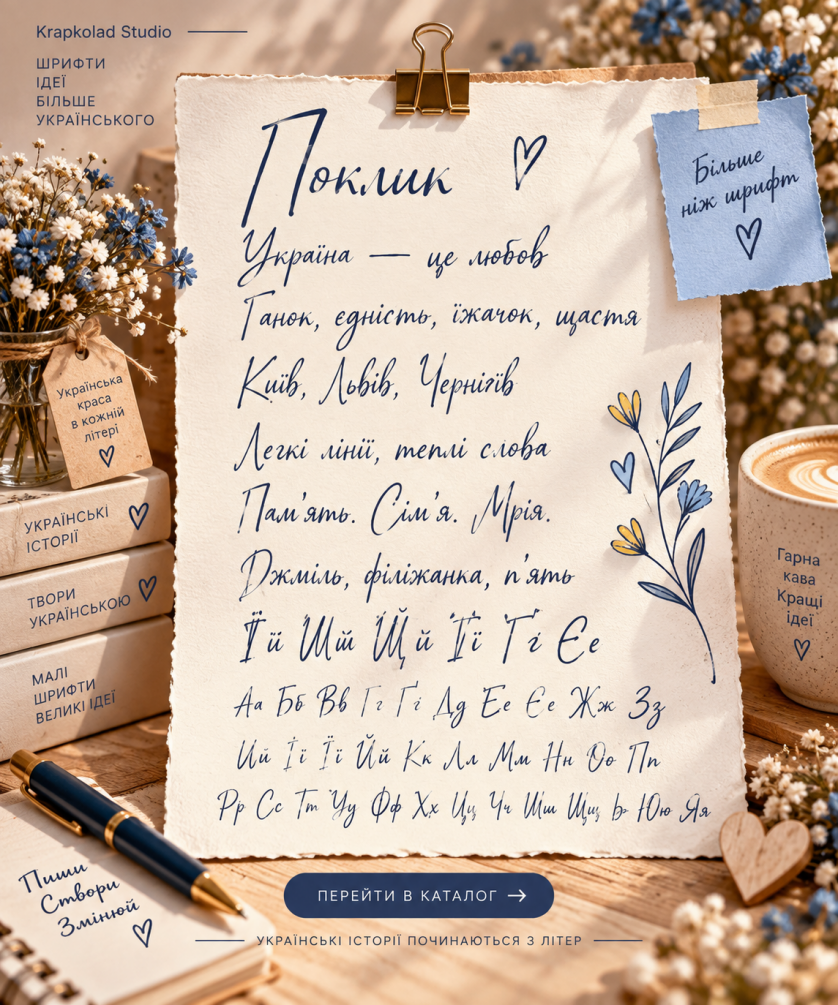 Krapkolad Studio
ШРИФТИ
ІДЕЇ
БІЛЬШЕ
УКРАЇНСЬКОГО
Поклик
Більше
ніж шрифт
Україна — це любов
Ґанок, єдність, їжачок, щастя
Київ, Львів, Чернігів
Легкі лінії, теплі слова
Пам'ять. Сім'я. Мрія.
Джміль, філіжанка, п'ять
Її Єє
Аа Бб Вв Гг Ґґ Дд Ее Єє Жж Зз
Ии Іі Її Йй Кк Лл Мм Нн Оо Пп
Рр Сс Тт Уу Фф Хх Цц Чч Шш Щщ ь Юю Яя
Українська
краса
в кожній
літері
УКРАЇНСЬКІ
ІСТОРІЇ
ТВОРИ
УКРАЇНСЬКОЮ
МАЛІ
ШРИФТИ
ВЕЛИКІ ІДЕЇ
Гарна
кава
Кращі
ідеї
Пиши
Створи
Змінюй
ПЕРЕЙТИ В КАТАЛОГ →
УКРАЇНСЬКІ ІСТОРІЇ ПОЧИНАЮТЬСЯ З ЛІТЕР